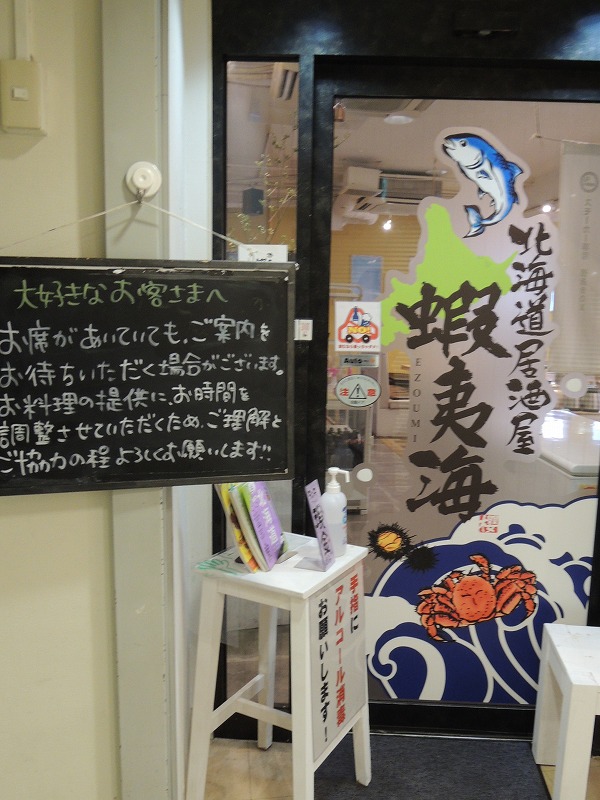 大好きなお客さまへ
お席があいていても、ご案内を
お待ちいただく場合がございます。
お料理の提供に、お時間を
調整させていただくため、ご理解と
ご協力の程よろしくお願いします!!
北海道居酒屋
蝦夷海
EZOUMI
NO!
注意
手指に
アルコール消毒
お願いします!